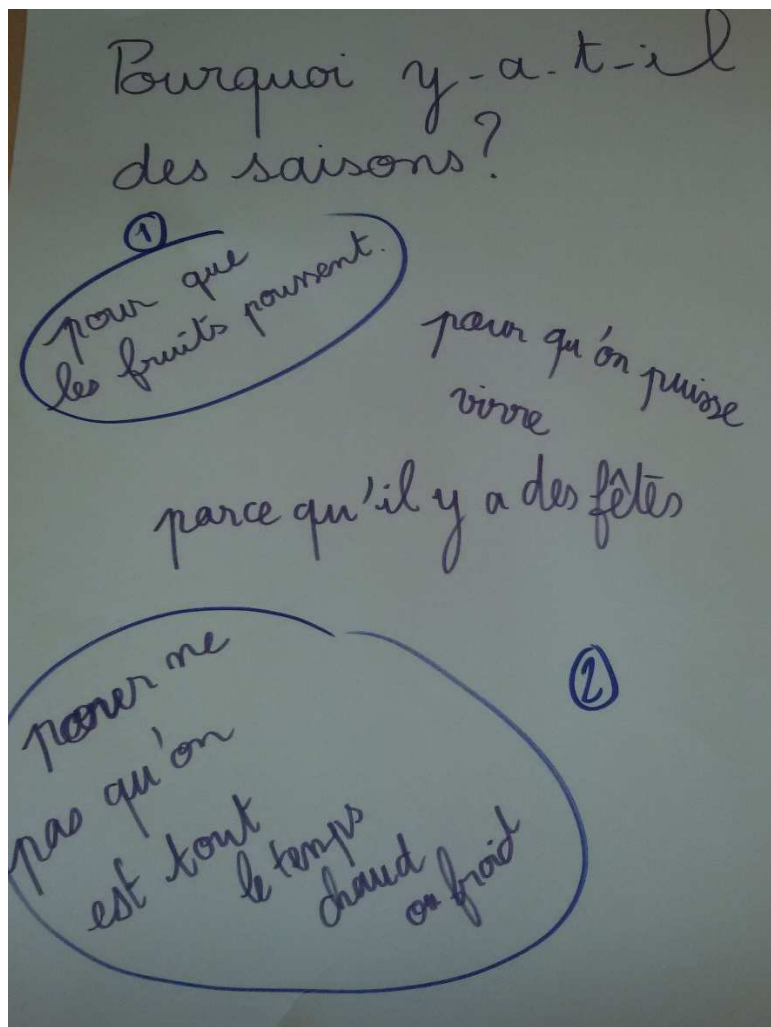 Pourquoi y-a-t-il
des saisons?
1
pour que
les fruits poussent.
pour qu'on puisse
vivre
parce qu'il y a des fêtes
2
pour ne
pas qu'on
est tout
le temps
chaud
ou froid